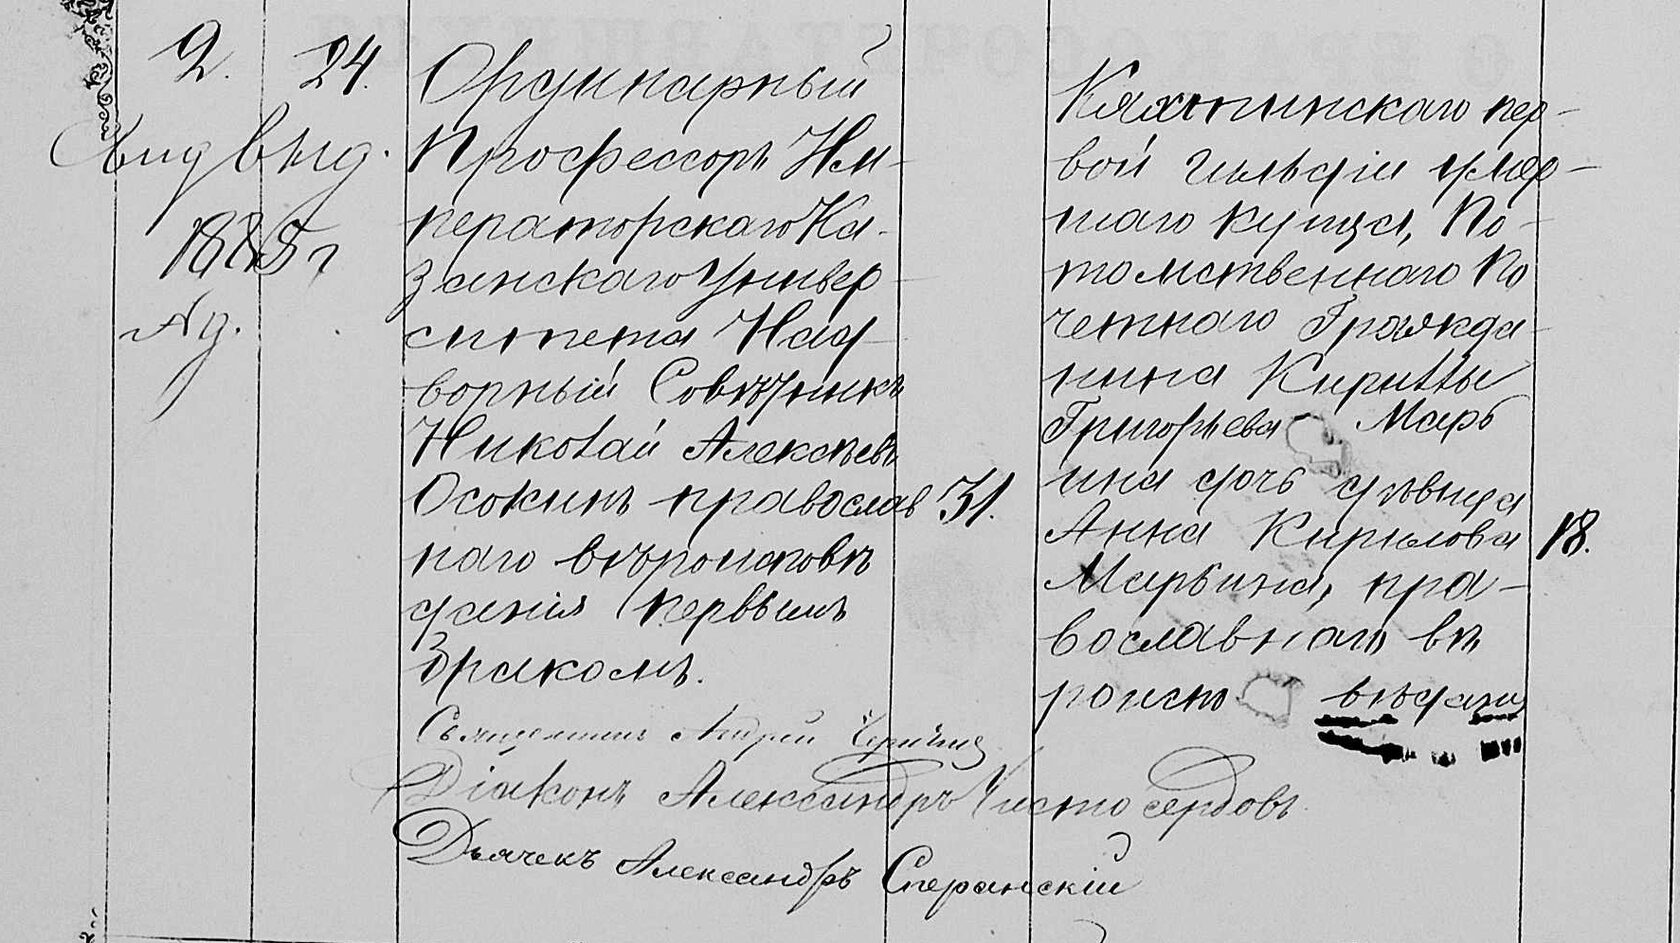 2. 24.
выд.
1885 г
Ординарный
Профессоръ Им-
ператорскаго Ка-
занскаго Универ-
ситета Над-
ворный Совѣтникъ
Николай Алексѣевъ
Осокинъ православ
наго вѣроисповѣ
данія первымъ
бракомъ.
31.
Кяхтинскаго пер-
вой гильдіи умер-
шаго купца, По-
томственнаго По
четнаго Гражда-
нина Кириллы
Григорьева Марь
ина дочь дѣвица
Анна Кирилова
Марьина, пра-
вославнаго вѣ
роиспо вѣданія
18.
Священникъ Андрей
Діаконъ Александръ Чистосердовъ.
Дьячекъ Александръ Сперанскій